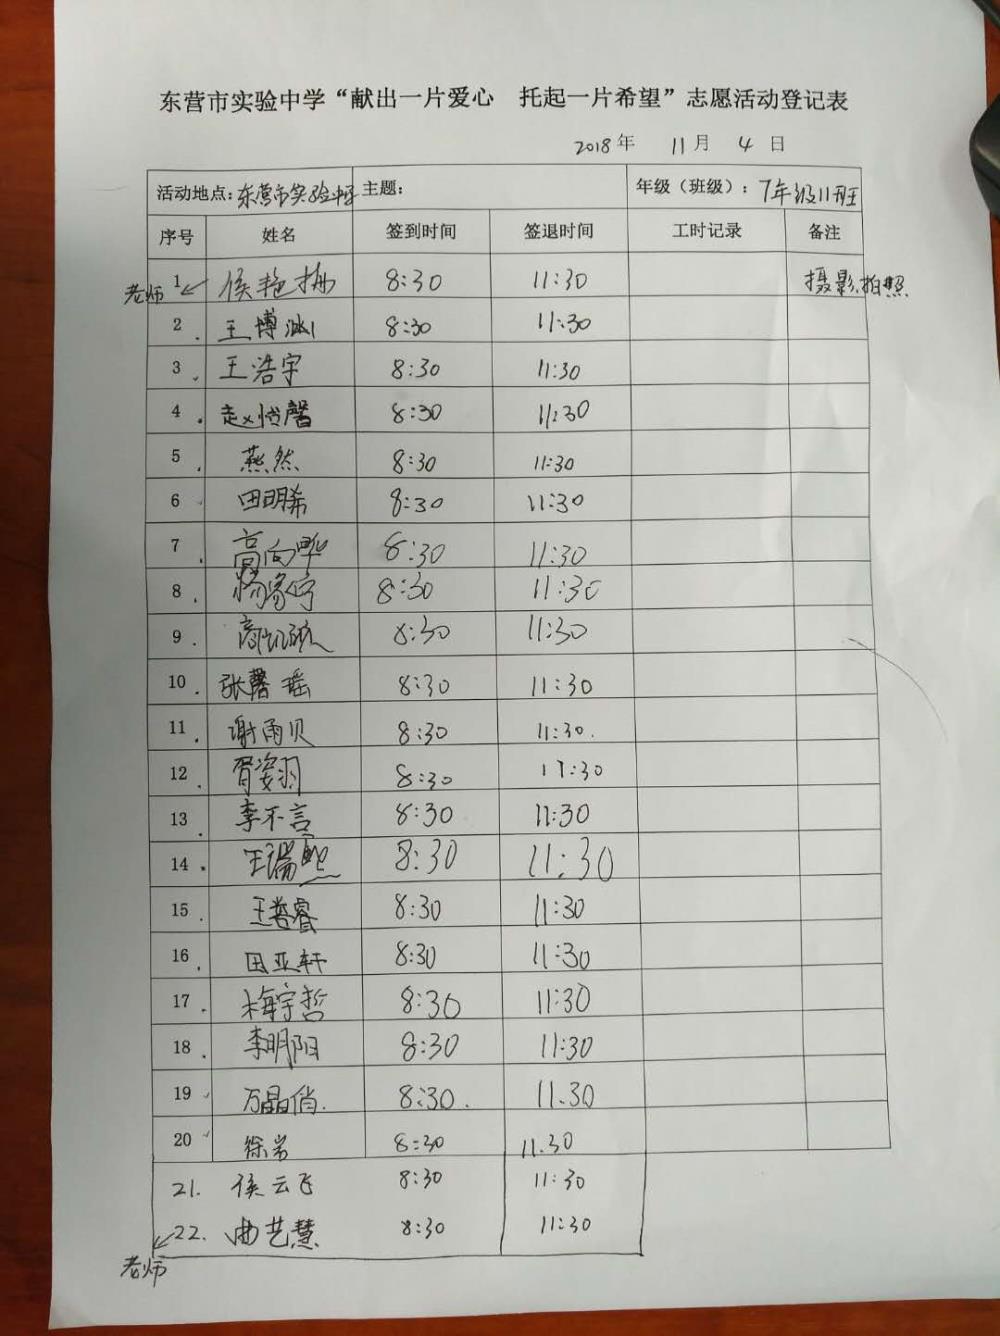 东营市实验中学“献出一片爱心 托起一片希望”志愿活动登记表
2018年 11月 4日
活动地点:东营市实验中学 主题: 年级（班级）: 7年级11班
序号 姓名 签到时间 签退时间 工时记录 备注
老师 1 侯艳梅 8:30 11:30 摄影、拍照
2 王博渊 8:30 11:30
3 王浩宇 8:30 11:30
4 赵悦馨 8:30 11:30
5 燕然 8:30 11:30
6 田明希 8:30 11:30
7 高向晔 8:30 11:30
8 杨 8:30 11:30
9 商凯 8:30 11:30
10 张馨瑶 8:30 11:30
11 谢雨贝 8:30 11:30.
12 胥姿羽 8:30 11:30
13 李不言 8:30 11:30
14 王瑞熙 8:30 11:30
15 王哲睿 8:30 11:30
16 田亚轩 8:30 11:30
17 梅宇哲 8:30 11:30
18 李明阳 8:30 11:30
19 万晶俏. 8:30. 11.30
20 徐岩 8:30 11.30
21. 侯云飞 8:30 11:30
22. 曲艺慧 8:30 11:30
老师